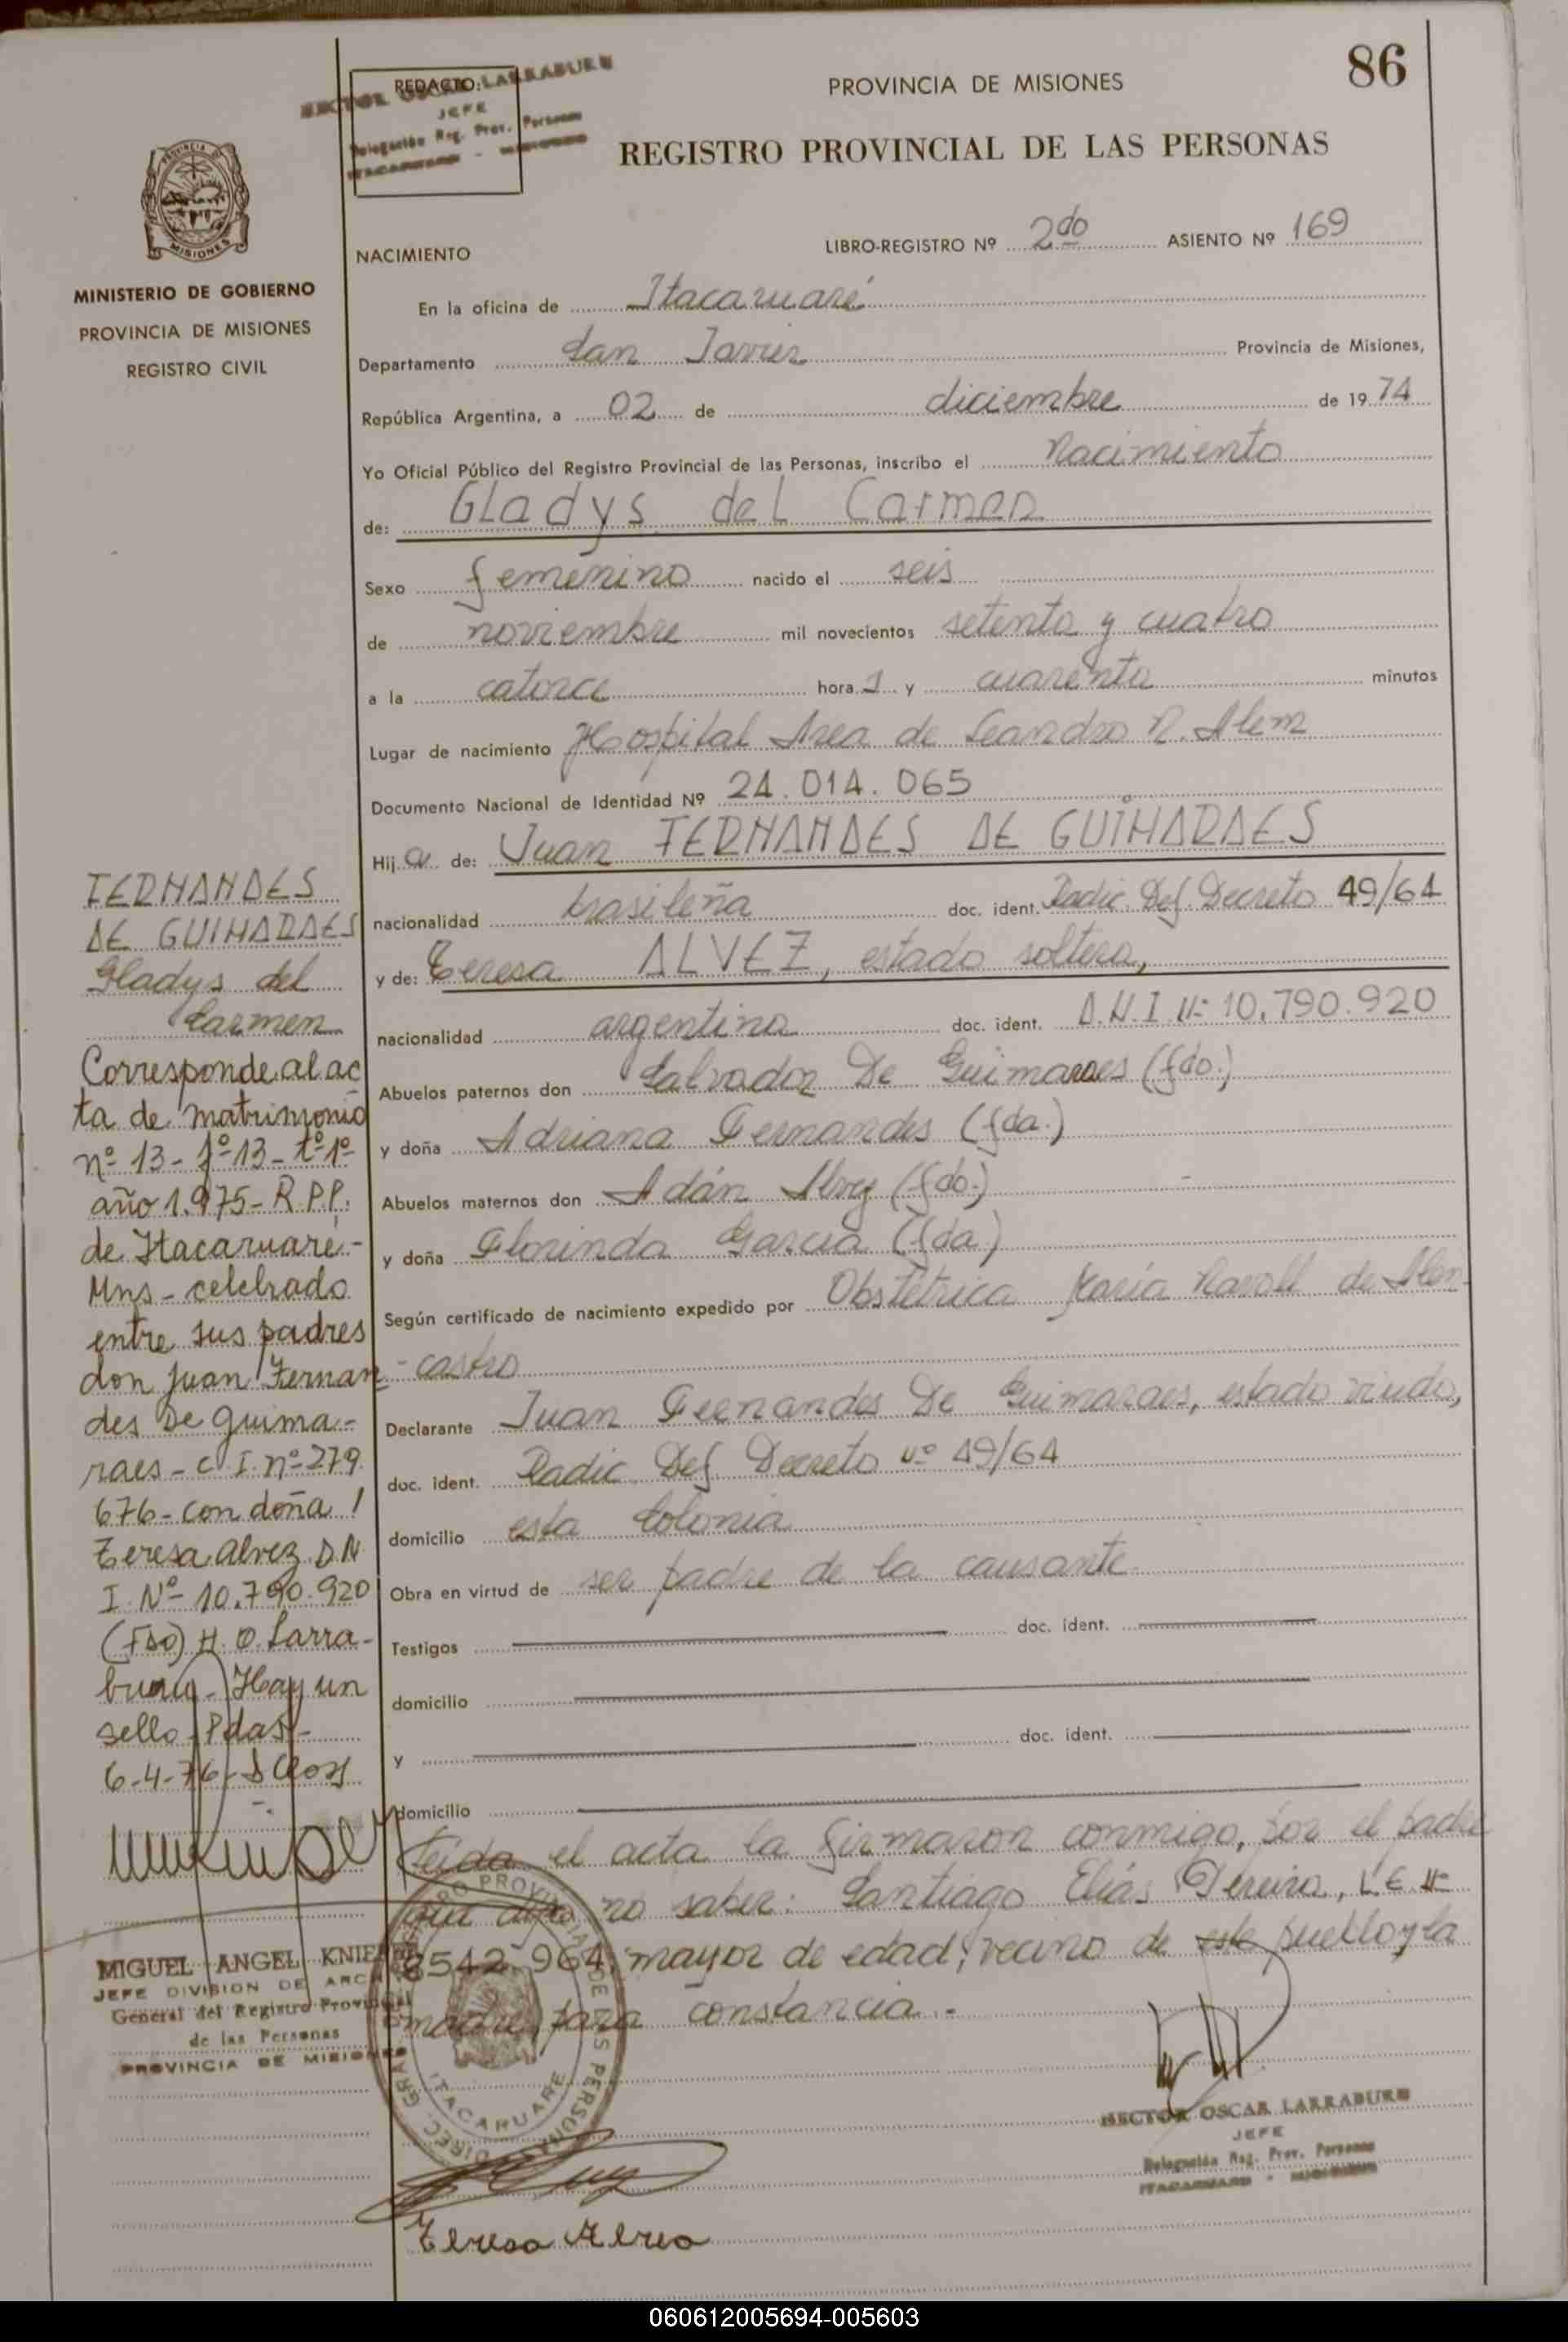 86
REDACTO:
HECTOR OSCAR LARRABURU
JEFE
Delegación Reg. Prov. Personas
ITACARUARE - MISIONES
PROVINCIA DE MISIONES
REGISTRO PROVINCIAL DE LAS PERSONAS
PROVINCIA DE
MISIONES
MINISTERIO DE GOBIERNO
PROVINCIA DE MISIONES
REGISTRO CIVIL
NACIMIENTO
LIBRO-REGISTRO Nº 2do ASIENTO Nº 169
En la oficina de Itacaruaré
Departamento San Javier Provincia de Misiones,
República Argentina, a 02 de diciembre de 19 74
Yo Oficial Público del Registro Provincial de las Personas, inscribo el Nacimiento
de: Gladys del Carmen
Sexo femenino nacido el seis
de noviembre mil novecientos setenta y cuatro
a la catorce hora s y cuarenta minutos
Lugar de nacimiento Hospital Area de Leandro N. Alem
Documento Nacional de Identidad Nº 24.014.065
Hij a de: Juan FERNANDES DE GUIMARAES
nacionalidad brasileña doc. ident. Radic. Def. Decreto 49/64
y de: Teresa ALVEZ, estado soltera,
nacionalidad argentina doc. ident. D.N.I Nº 10.790.920
Abuelos paternos don Salvador De Guimaraes (fdo.)
y doña Adriana Fernandes (fda.)
Abuelos maternos don Adán Alvez (fdo.)
y doña Florinda Garcia (fda)
Según certificado de nacimiento expedido por Obstétrica María de Alen-
-castro
Declarante Juan Fernandes De Guimaraes, estado viudo,
doc. ident. Radic Def. Decreto nº 49/64
domicilio esta Colonia
Obra en virtud de ser padre de la causante
Testigos doc. ident.
domicilio
y doc. ident.
domicilio
Leída el acta la firmaron conmigo, por el padre
que dijo no saber: Santiago Elías Pereira, L.E. Nº
8542.964, mayor de edad, vecino de este pueblo y la
madre, para constancia.-
FERNANDES
DE GUIMARAES
Gladys del
Carmen
Corresponde al ac
ta de matrimonio
nº 13 - fº 13 - tº 1º
año 1.975 - R.P.P.
de Itacaruare -
Mns - celebrado
entre sus padres
don Juan Fernan
des De Guima-
raes - C.I. nº 279.
676 - con doña
Teresa Alvez D.N.
I. Nº 10.790.920
(FDO) H. O. Larra-
buru - Hay un
sello - Pdas -
6-4-76 -
MIGUEL ANGEL
JEFE DIVISION DE ARCH
General del Registro Provincial
de las Personas
PROVINCIA DE MISIONES
REGISTRO PROVINCIAL DE LAS PERSONAS
DIREC. GRAL.
ITACARUARE
HECTOR OSCAR LARRABURU
JEFE
Delegación Reg. Prov. Personas
ITACARUARE - MISIONES
Teresa
060612005694-005603